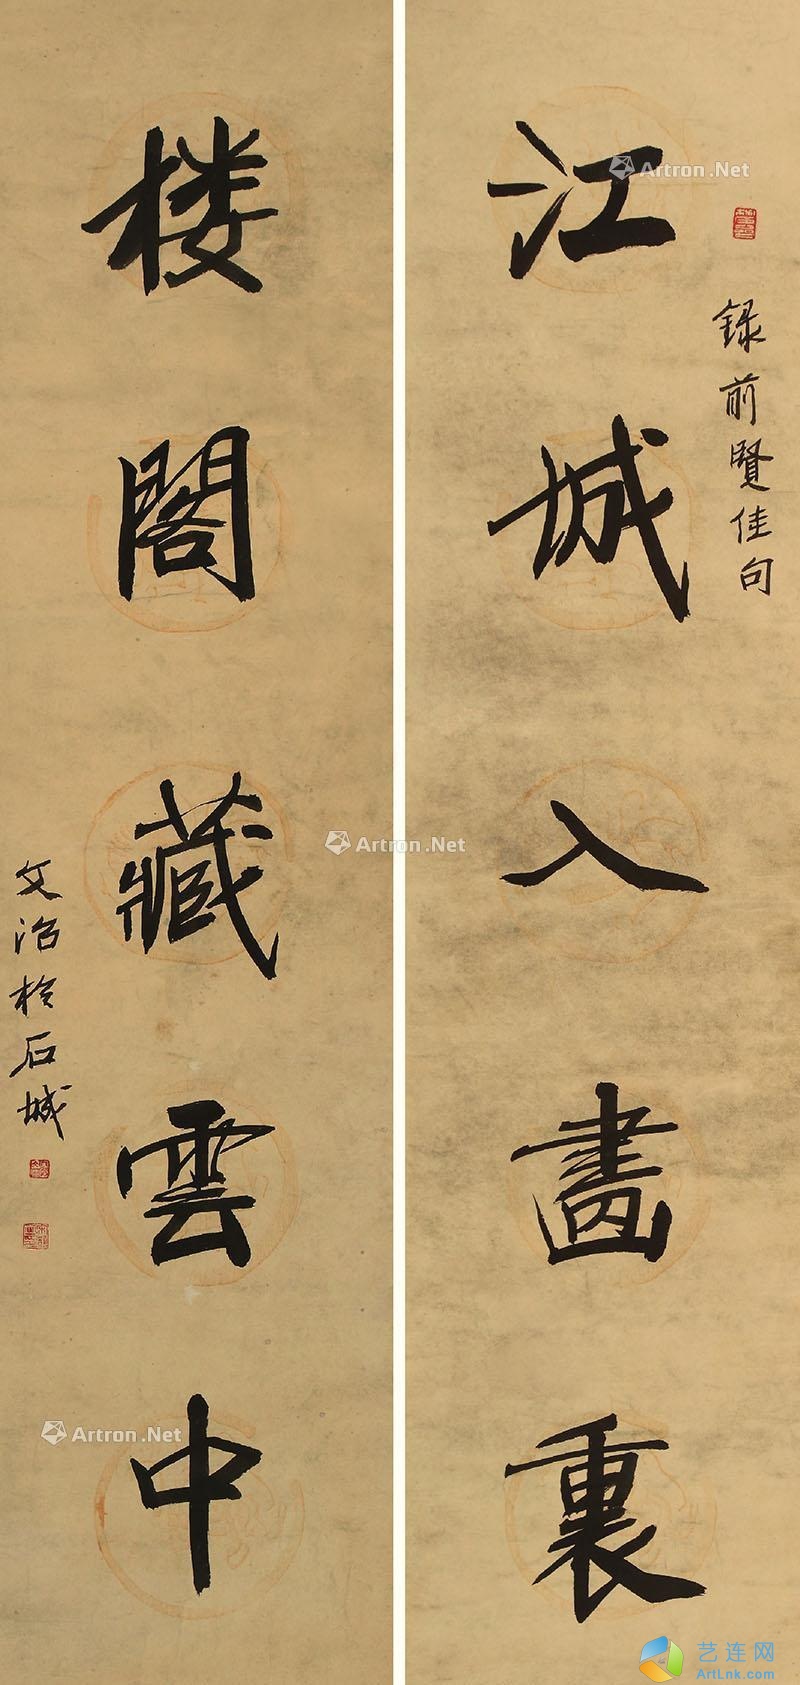 江城入畫裏
録前賢佳句
楼閣藏雲中
文治於石城
Artron.Net
Artron.Net
Artron.Net
艺连网
ArtLnk.com